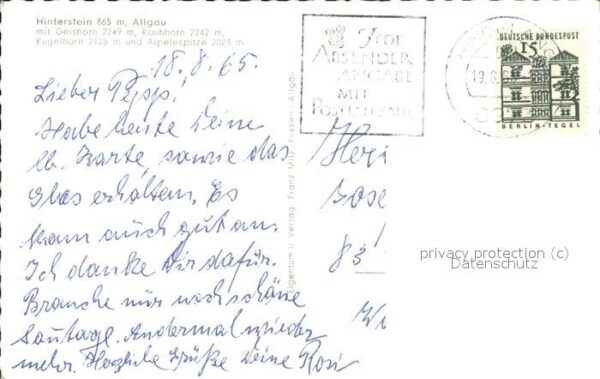 Hinterstein 865 m, Allgäu
mit Geishorn 2249 m, Rauhhorn 2242 m,
Kugelhorn 2125 m und Alpelespitze 2023 m
18.8.65.
Lieber Pepp!
Habe heute Deine
lb. Karte, sowie das
Glas erhalten. Es
kam auch gut an.
Ich danke Dir dafür.
Brauche nur noch schöne
Sonntage. Andermal wieder
mehr. Herzliche Grüße Deine Rosi
Eigentum u. Verlag: Franz Milz, Füssen-Allgäu
JEDE
ABSENDER
ANGABE
MIT
POSTLEITZAHL
DEUTSCHE BUNDESPOST
15
BERLIN-TEGEL
Herrn
Jose
83
privacy protection (c)
Datenschutz